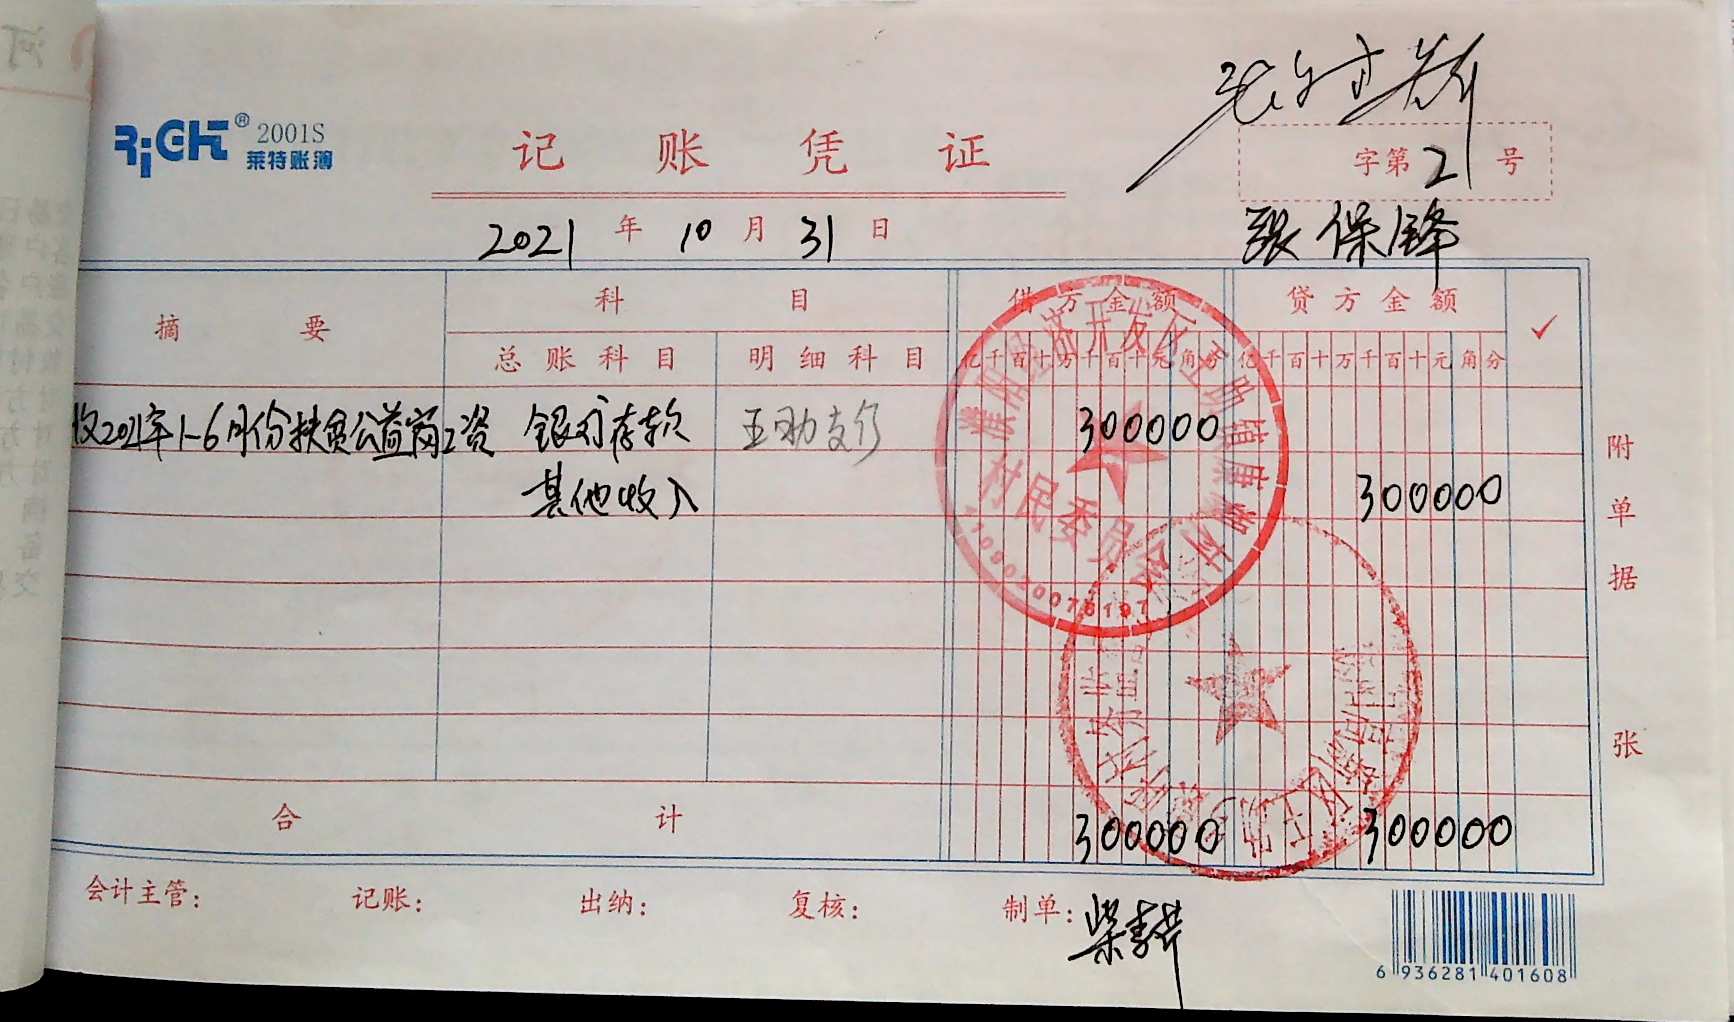 RiGHT® 2001S
莱特账簿
记账凭证
字第21号
2021年10月31日
张保锋
摘要 科目 借方金额 贷方金额 ✓
总账科目 明细科目 亿千百十万千百十元角分 亿千百十万千百十元角分
收2021年1-6月份扶贫公益岗工资 银行存款 互助支行 300000
其他收入 300000
合计 300000 300000
附单据 张
村民委员会
会计主管: 记账: 出纳: 复核: 制单:
6 936281 401608